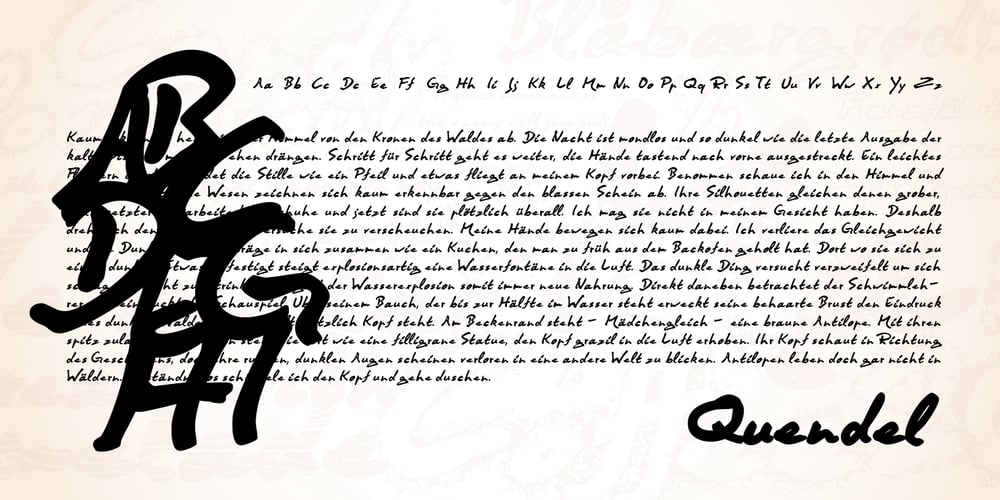 Aa Bb Cc Dd Ee Ff Gg Hh Ii Jj Kk Ll Mm Nn Oo Pp Qq Rr Ss Tt Uu Vv Ww Xx Yy Zz
Kaum Himmel von den Kronen des Waldes ab. Die Nacht ist mondlos und so dunkel wie die letzte Ausgabe der
drängen. Schritt für Schritt geht es weiter, die Hände tastend nach vorne ausgestreckt. Ein leichtes
die Stille wie ein Pfeil und etwas fliegt an meinem Kopf vorbei. Benommen schaue ich in den Himmel und
Wesen zeichnen sich kaum erkennbar gegen den blassen Schein ab. Ihre Silhouetten gleichen denen grober,
und jetzt sind sie plötzlich überall. Ich mag sie nicht in meinem Gesicht haben. Deshalb
den sie zu verscheuchen. Meine Hände bewegen sich kaum dabei. Ich verliere das Gleichgewicht
und in sich zusammen wie ein Kuchen, den man zu früh aus dem Backofen geholt hat. Dort wo sie sich zu
steigt explosionsartig eine Wasserfontäne in die Luft. Das dunkle Ding versucht verzweifelt um sich
zu der Wasserexplosion somit immer neue Nahrung. Direkt daneben betrachtet der Schwimmleh-
Schauspiel. seinem Bauch, der bis zur Hälfte im Wasser steht erweckt seine behaarte Brust den Eindruck
Kopf steht. Am Beckenrand steht - Mädchengleich - eine braune Antilope. Mit ihren
spitz wie eine filligrane Statue, den Kopf grazil in die Luft erhoben. Ihr Kopf schaut in Richtung
des dunklen Augen scheinen verloren in eine andere Welt zu blicken. Antilopen leben doch gar nicht in
Wäldern. ich den Kopf und gehe duschen.
ABC
DG
EHI
Quendel